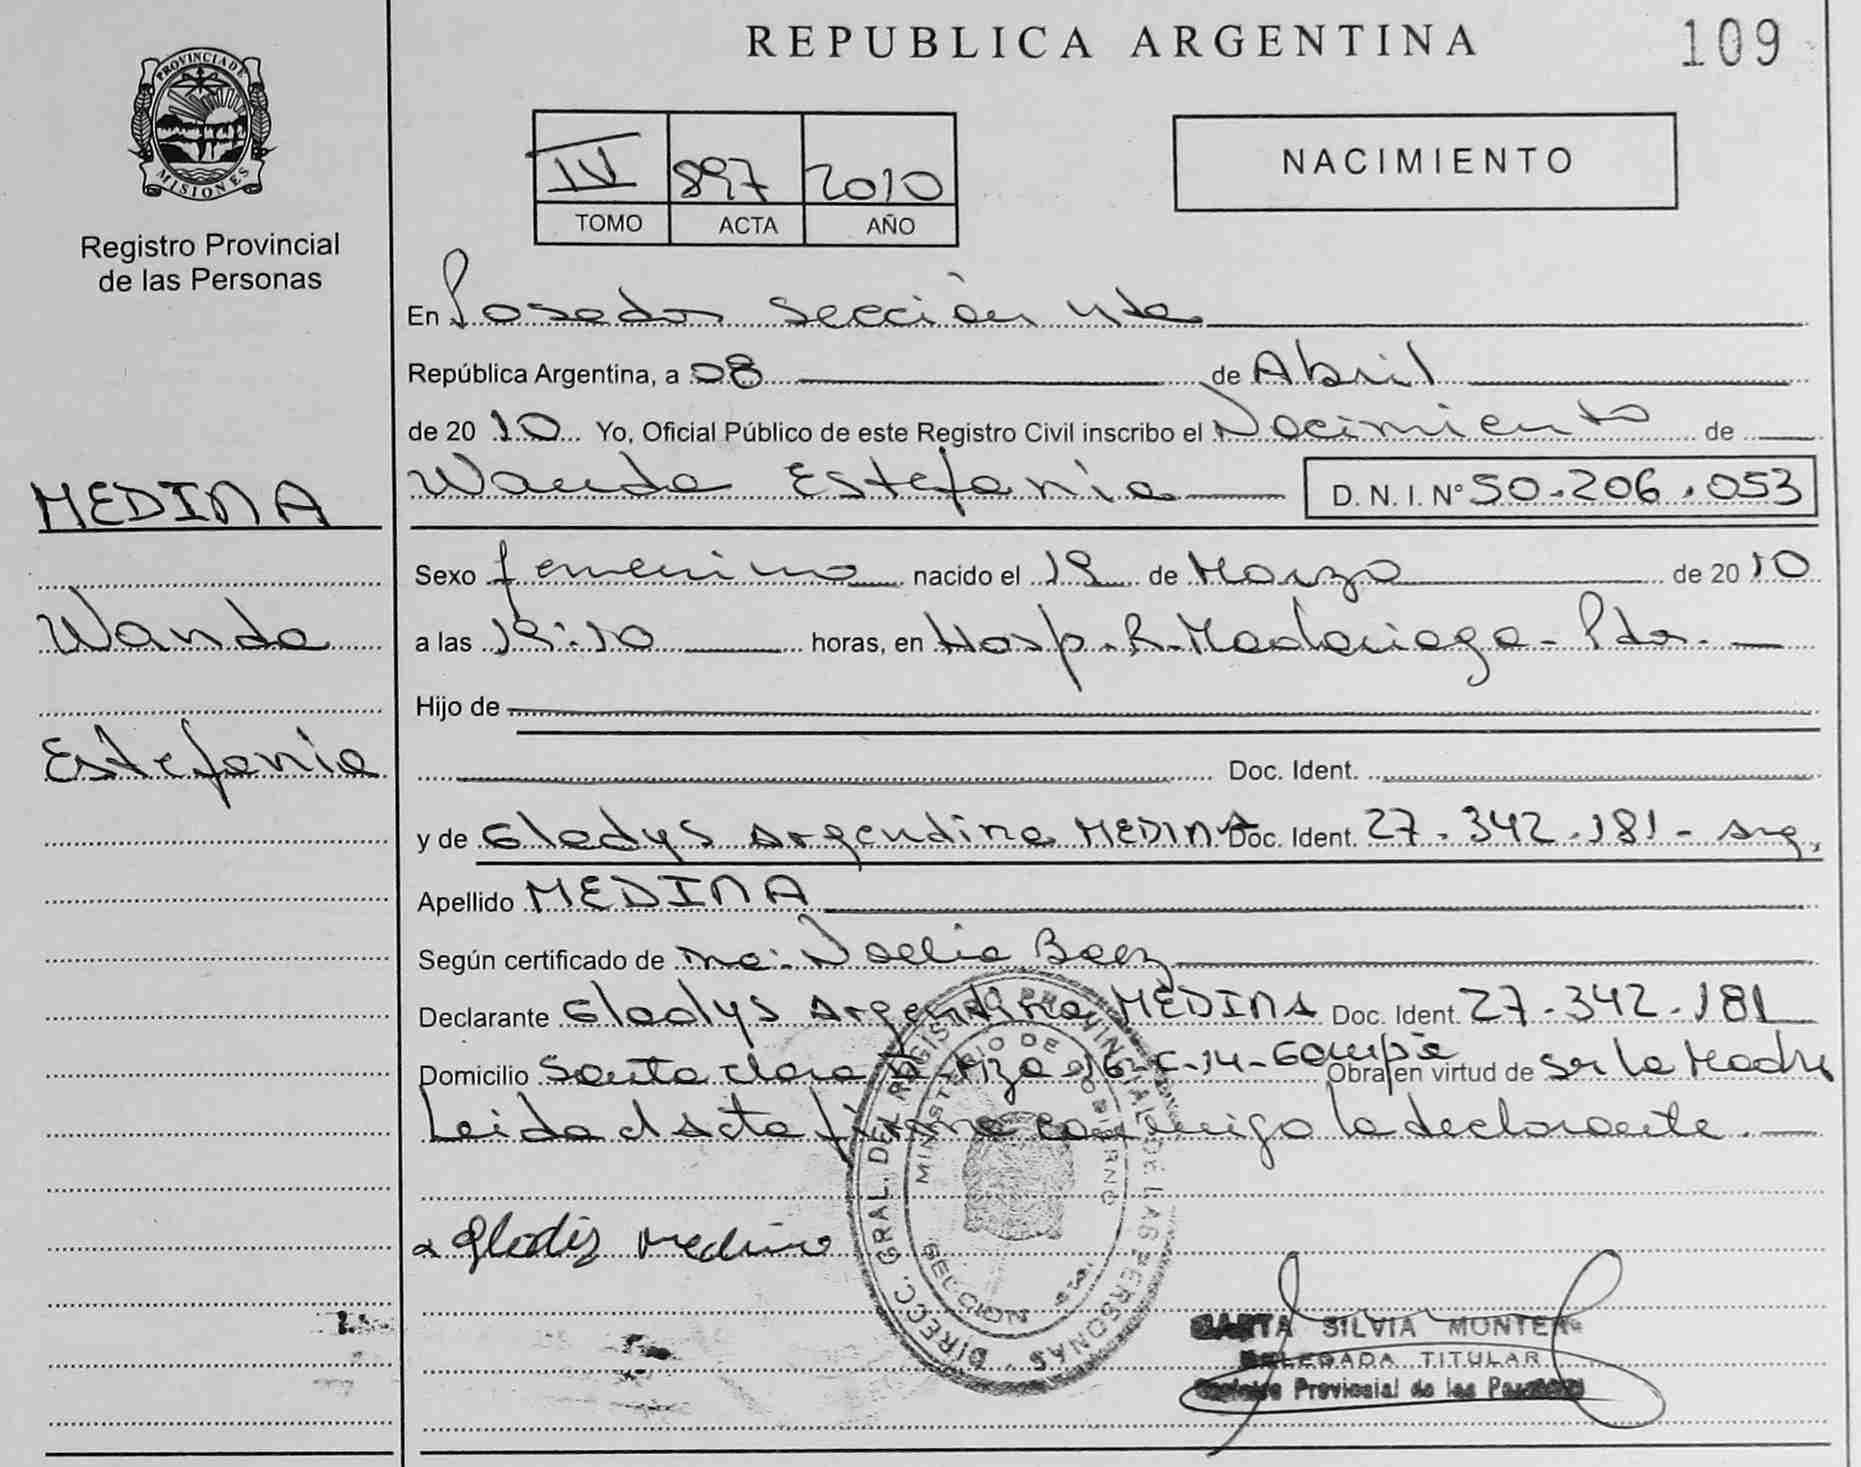 REPUBLICA ARGENTINA
109
PROVINCIA DE MISIONES
Registro Provincial
de las Personas
IV 897 2010
TOMO ACTA AÑO
NACIMIENTO
En Posadas sección 4ta
República Argentina, a 08 de Abril
de 2010 Yo, Oficial Público de este Registro Civil inscribo el Nacimiento de
Wanda Estefania D. N. I. N° 50.206.053
MEDINA
Wanda
Estefania
Sexo femenino nacido el 19 de Marzo de 2010
a las 19:10 horas, en Hosp. R. Madariaga - Pdas.
Hijo de
Doc. Ident.
y de Gladys Argentina MEDINA Doc. Ident. 27.342.181 - arg.
Apellido MEDINA
Según certificado de Ma. Noelia Baez
Declarante Gladys Argentina MEDINA Doc. Ident. 27.342.181
Domicilio Santa Clara Mza 16-C-14-Garupá Obra en virtud de ser la Madre
Leida el acta firma conmigo la declarante.
Gladis Medina
DIRECC. GRAL. DEL REGISTRO PROVINCIAL DE LAS PERSONAS
MINISTERIO DE GOBIERNO
SECCION 4ta.
SILVIA
DELEGADA TITULAR
Registro Provincial de las Personas